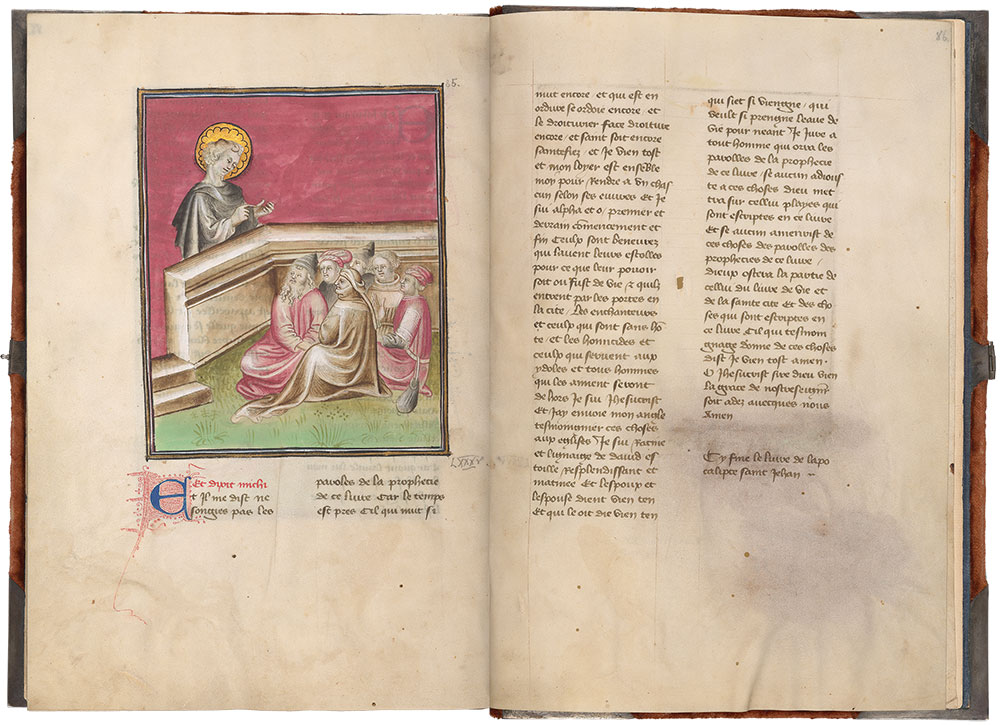 85.
LXXXV
Et dixit michi
Et il me dist ne
songies pas les
paroles de la prophecie
de ce livre Car le temps
est pres Cil qui nuit si
86
nuit encore et qui est en
ordure se ordoie encore et
le droiturier face droiture
encore et saint soit encore
saintefiez et Je vien tost
et mon loyer est ensemble
moy pour Rendre a un chas
cun selon ses euvres Et Je
sui alpha et o premier et
derrain commencement et
fin Ceulx sont beneurez
qui lavent leurs estolles
pour ce que leur povoir
soit ou fust de vie et quilz
entrent par les portes en
la cite Les enchanteurs
et ceulx qui sont sans hon
te et les homicides et
ceulx qui servent aux
ydoles et tous hommes
qui les aiment seront
de hors Je sui Jhesucrist
Et Jay envoie mon angle
tesmoingnier ces choses
aux eglises Je sui Racine
et lignaige de david es
toille Resplendissant et
matinee Et lespoux et
lespouse dient vien ten
Et qui le oit die vien ten
qui siet si viengne qui
veult si prengne leaue de
vie pour neant Je Jure a
tout homme qui orra les
parolles de la prophecie
de ce livre se aucun adious
te a ces choses dieu met
tra sur cellui playes qui
sont escriptes en ce livre
Et se aucun amenuise de
ces choses des parolles des
prophecies de ce livre
dieux ostera la partie de
cellui du livre de vie et
de la sainte cite Et des cho
ses qui sont escriptes en
ce livre Cil qui tesmoin
gnaige donne de ces choses
dist Je vien tost amen
O Jhesucrist sire dieu vien
la grace de nostre seigneur
soit adez avecques nous
Amen
Cy fine le livre de lapo
calipce saint Jehan